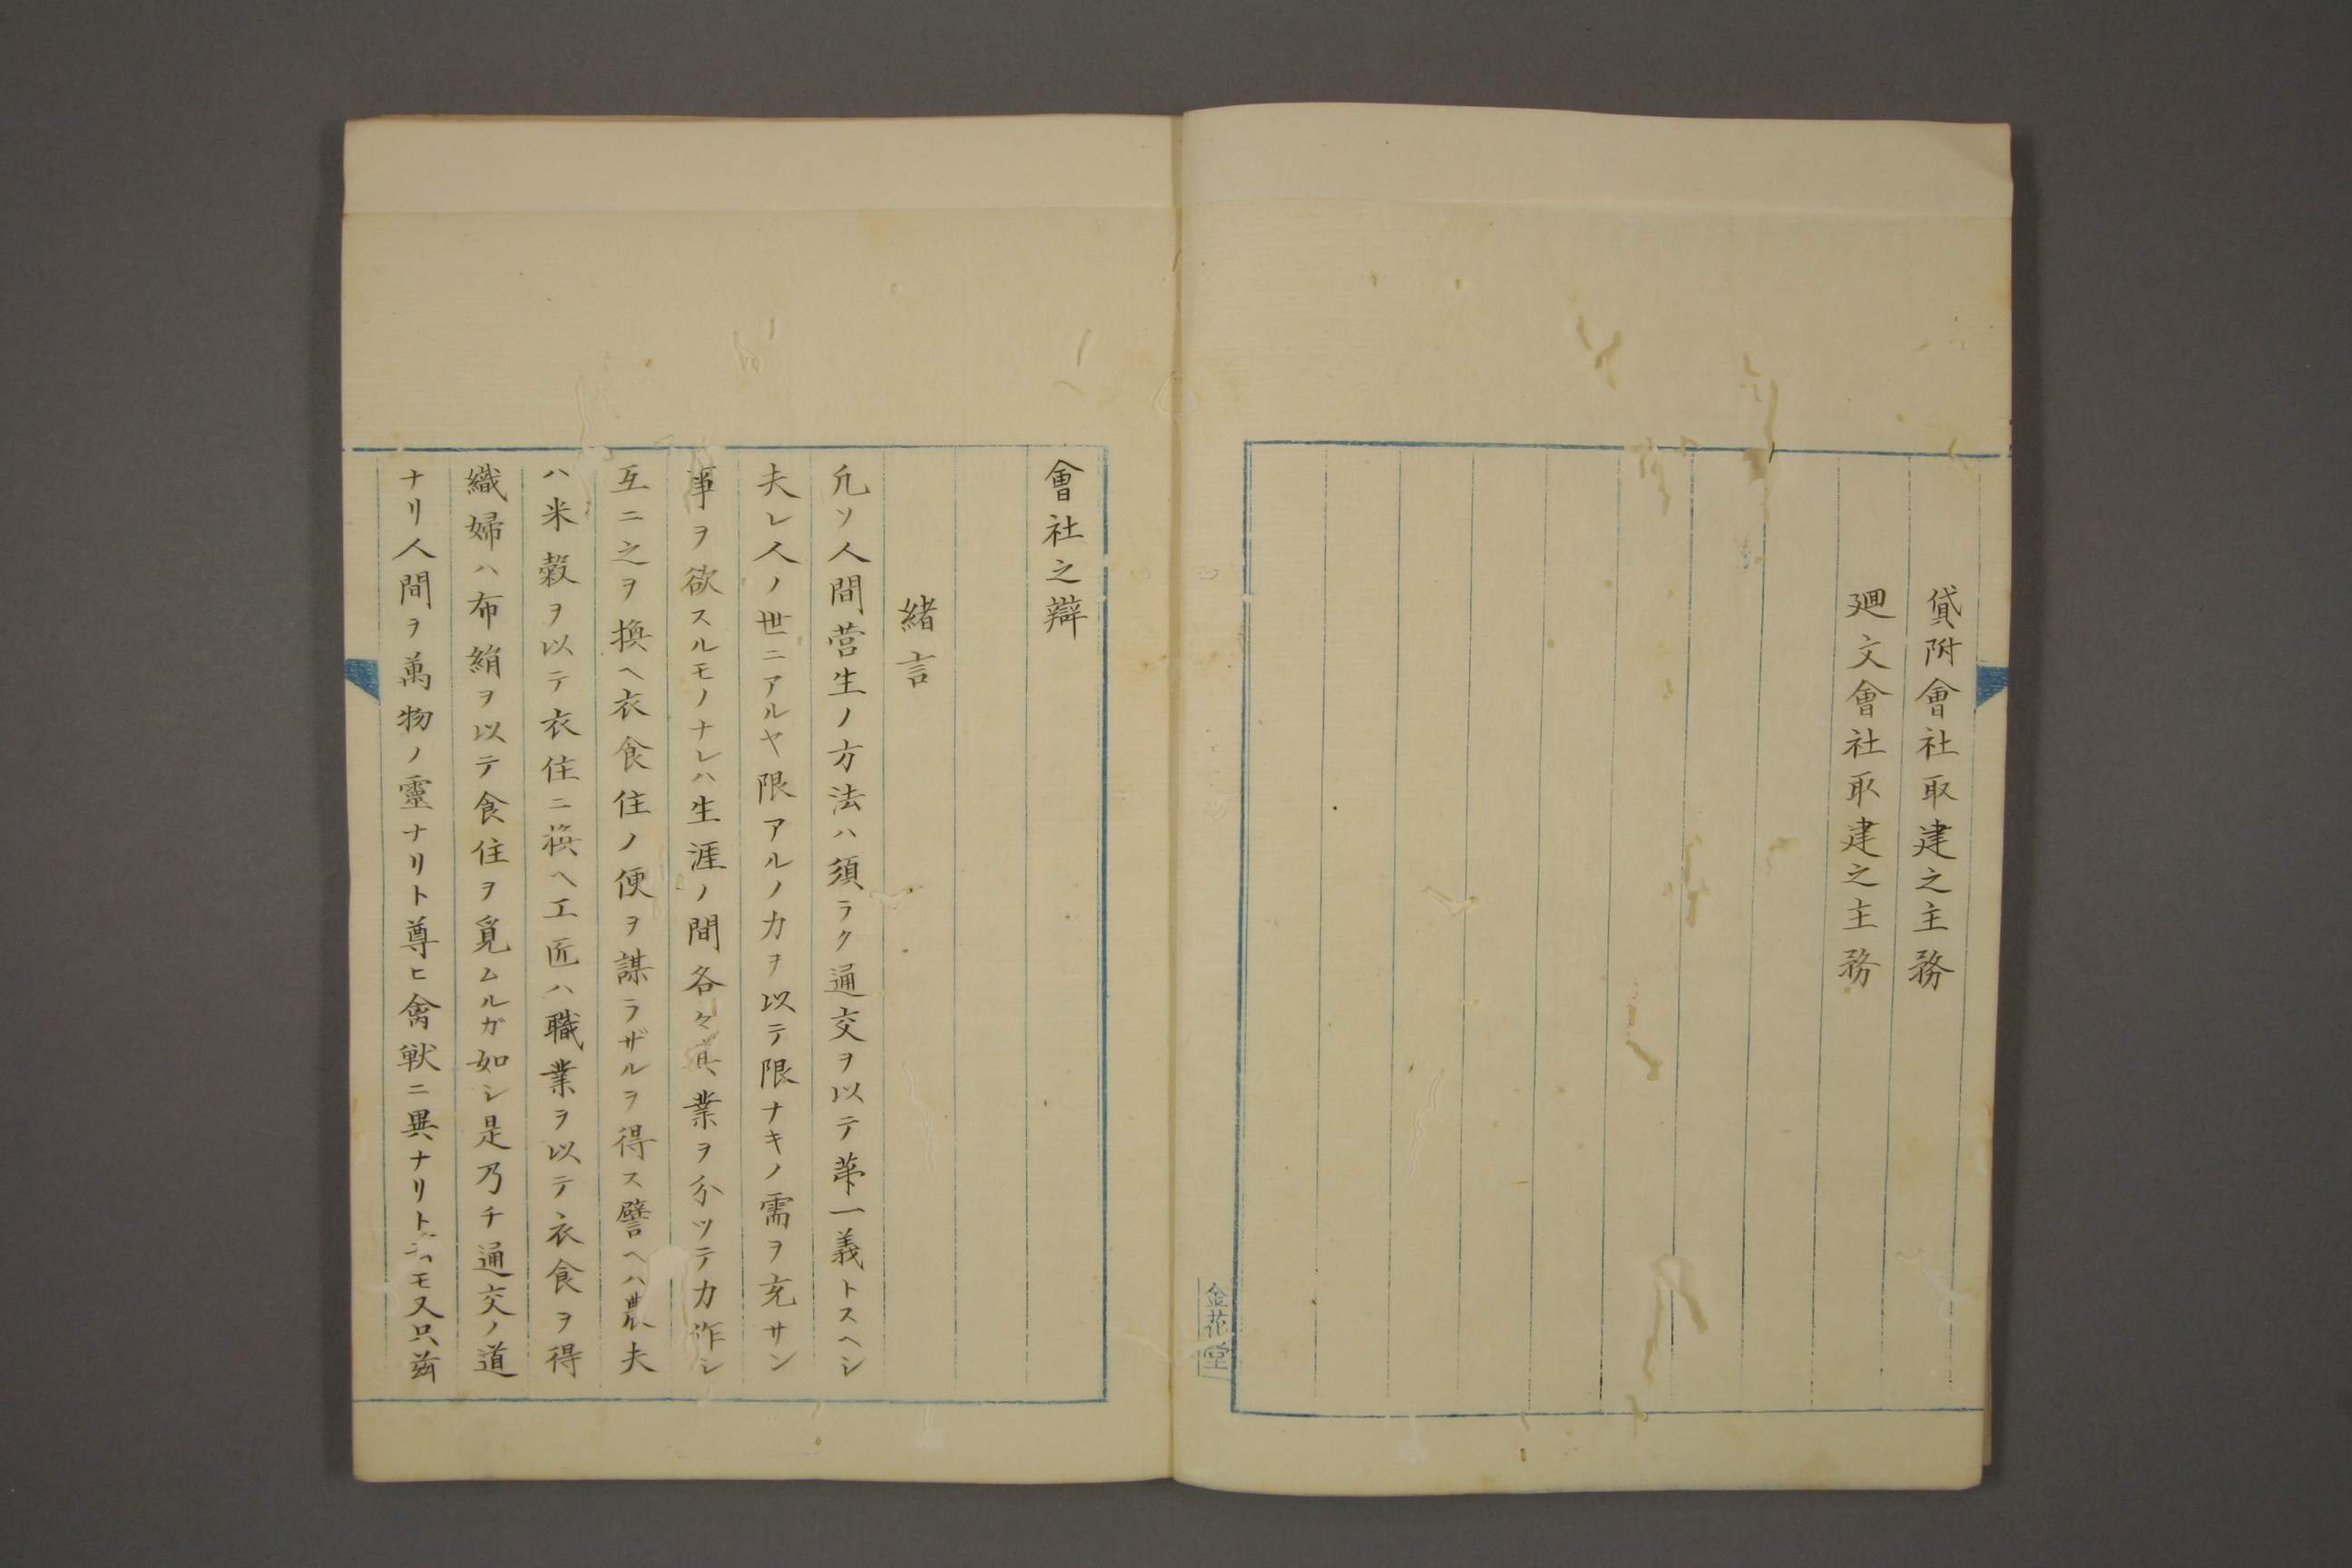 貸附會社取建之主務
廻文會社取建之主務
金花堂
會社之辯
緒言
凢ソ人間営生ノ方法ハ須ラク通交ヲ以テ苐一義トスヘシ
夫レ人ノ世ニアルヤ限アルノ力ヲ以テ限ナキノ需ヲ充サン
事ヲ欲スルモノナレハ生涯ノ間各々其業ヲ分ツテ力作シ
互ニ之ヲ換ヘ衣食住ノ便ヲ謀ラザルヲ得ス譬ヘハ農夫
ハ米穀ヲ以テ衣住ニ換ヘ工匠ハ職業ヲ以テ衣食ヲ得
織婦ハ布絹ヲ以テ食住ヲ覓ムルガ如シ是乃チ通交ノ道
ナリ人間ヲ萬物ノ靈ナリト尊ヒ禽獣ニ異ナリト モ又只茲